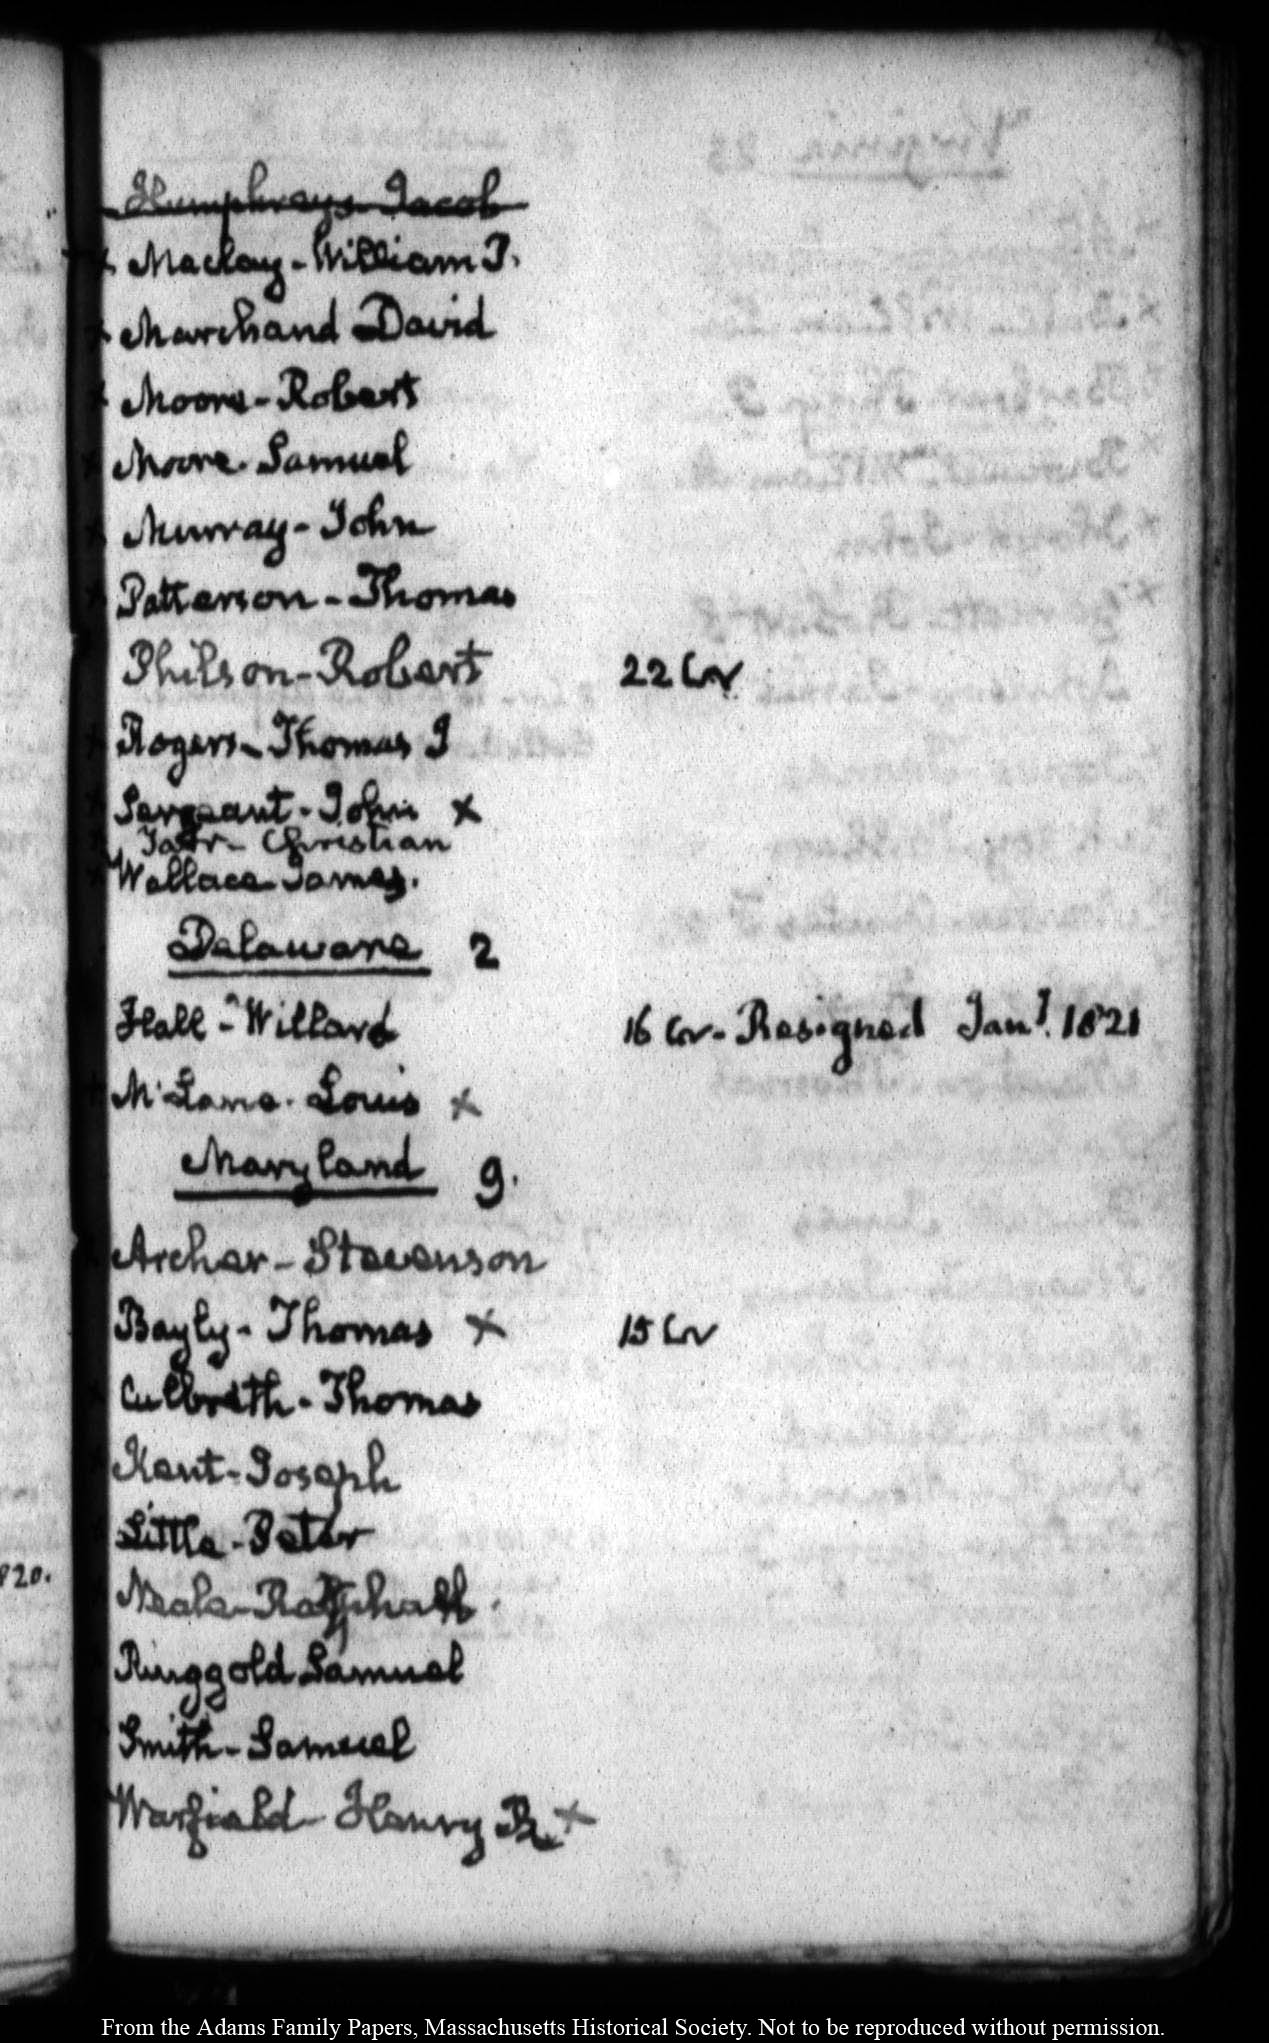 Humphrays Jacob
x Maclay - William P.
x Marchand David
x Moore - Robert
x Moore - Samuel
x Murray - John
x Patterson - Thomas
Philson - Robert 22 Cor
x Rogers - Thomas J
x Sergeant - John x
x Tarr - Christian
x Wallace James.
Delaware 2
Hall - Willard 16 Cor - Resigned Jany. 1821
x McLane - Louis x
Maryland 9.
Archer - Stevenson
Bayly - Thomas x 15 Cor
Culbreth - Thomas
Kent - Joseph
Little - Peter
820.
Neale - Raphael
Ringgold Samuel
Smith - Samuel
Warfield - Henry R x
From the Adams Family Papers, Massachusetts Historical Society. Not to be reproduced without permission.